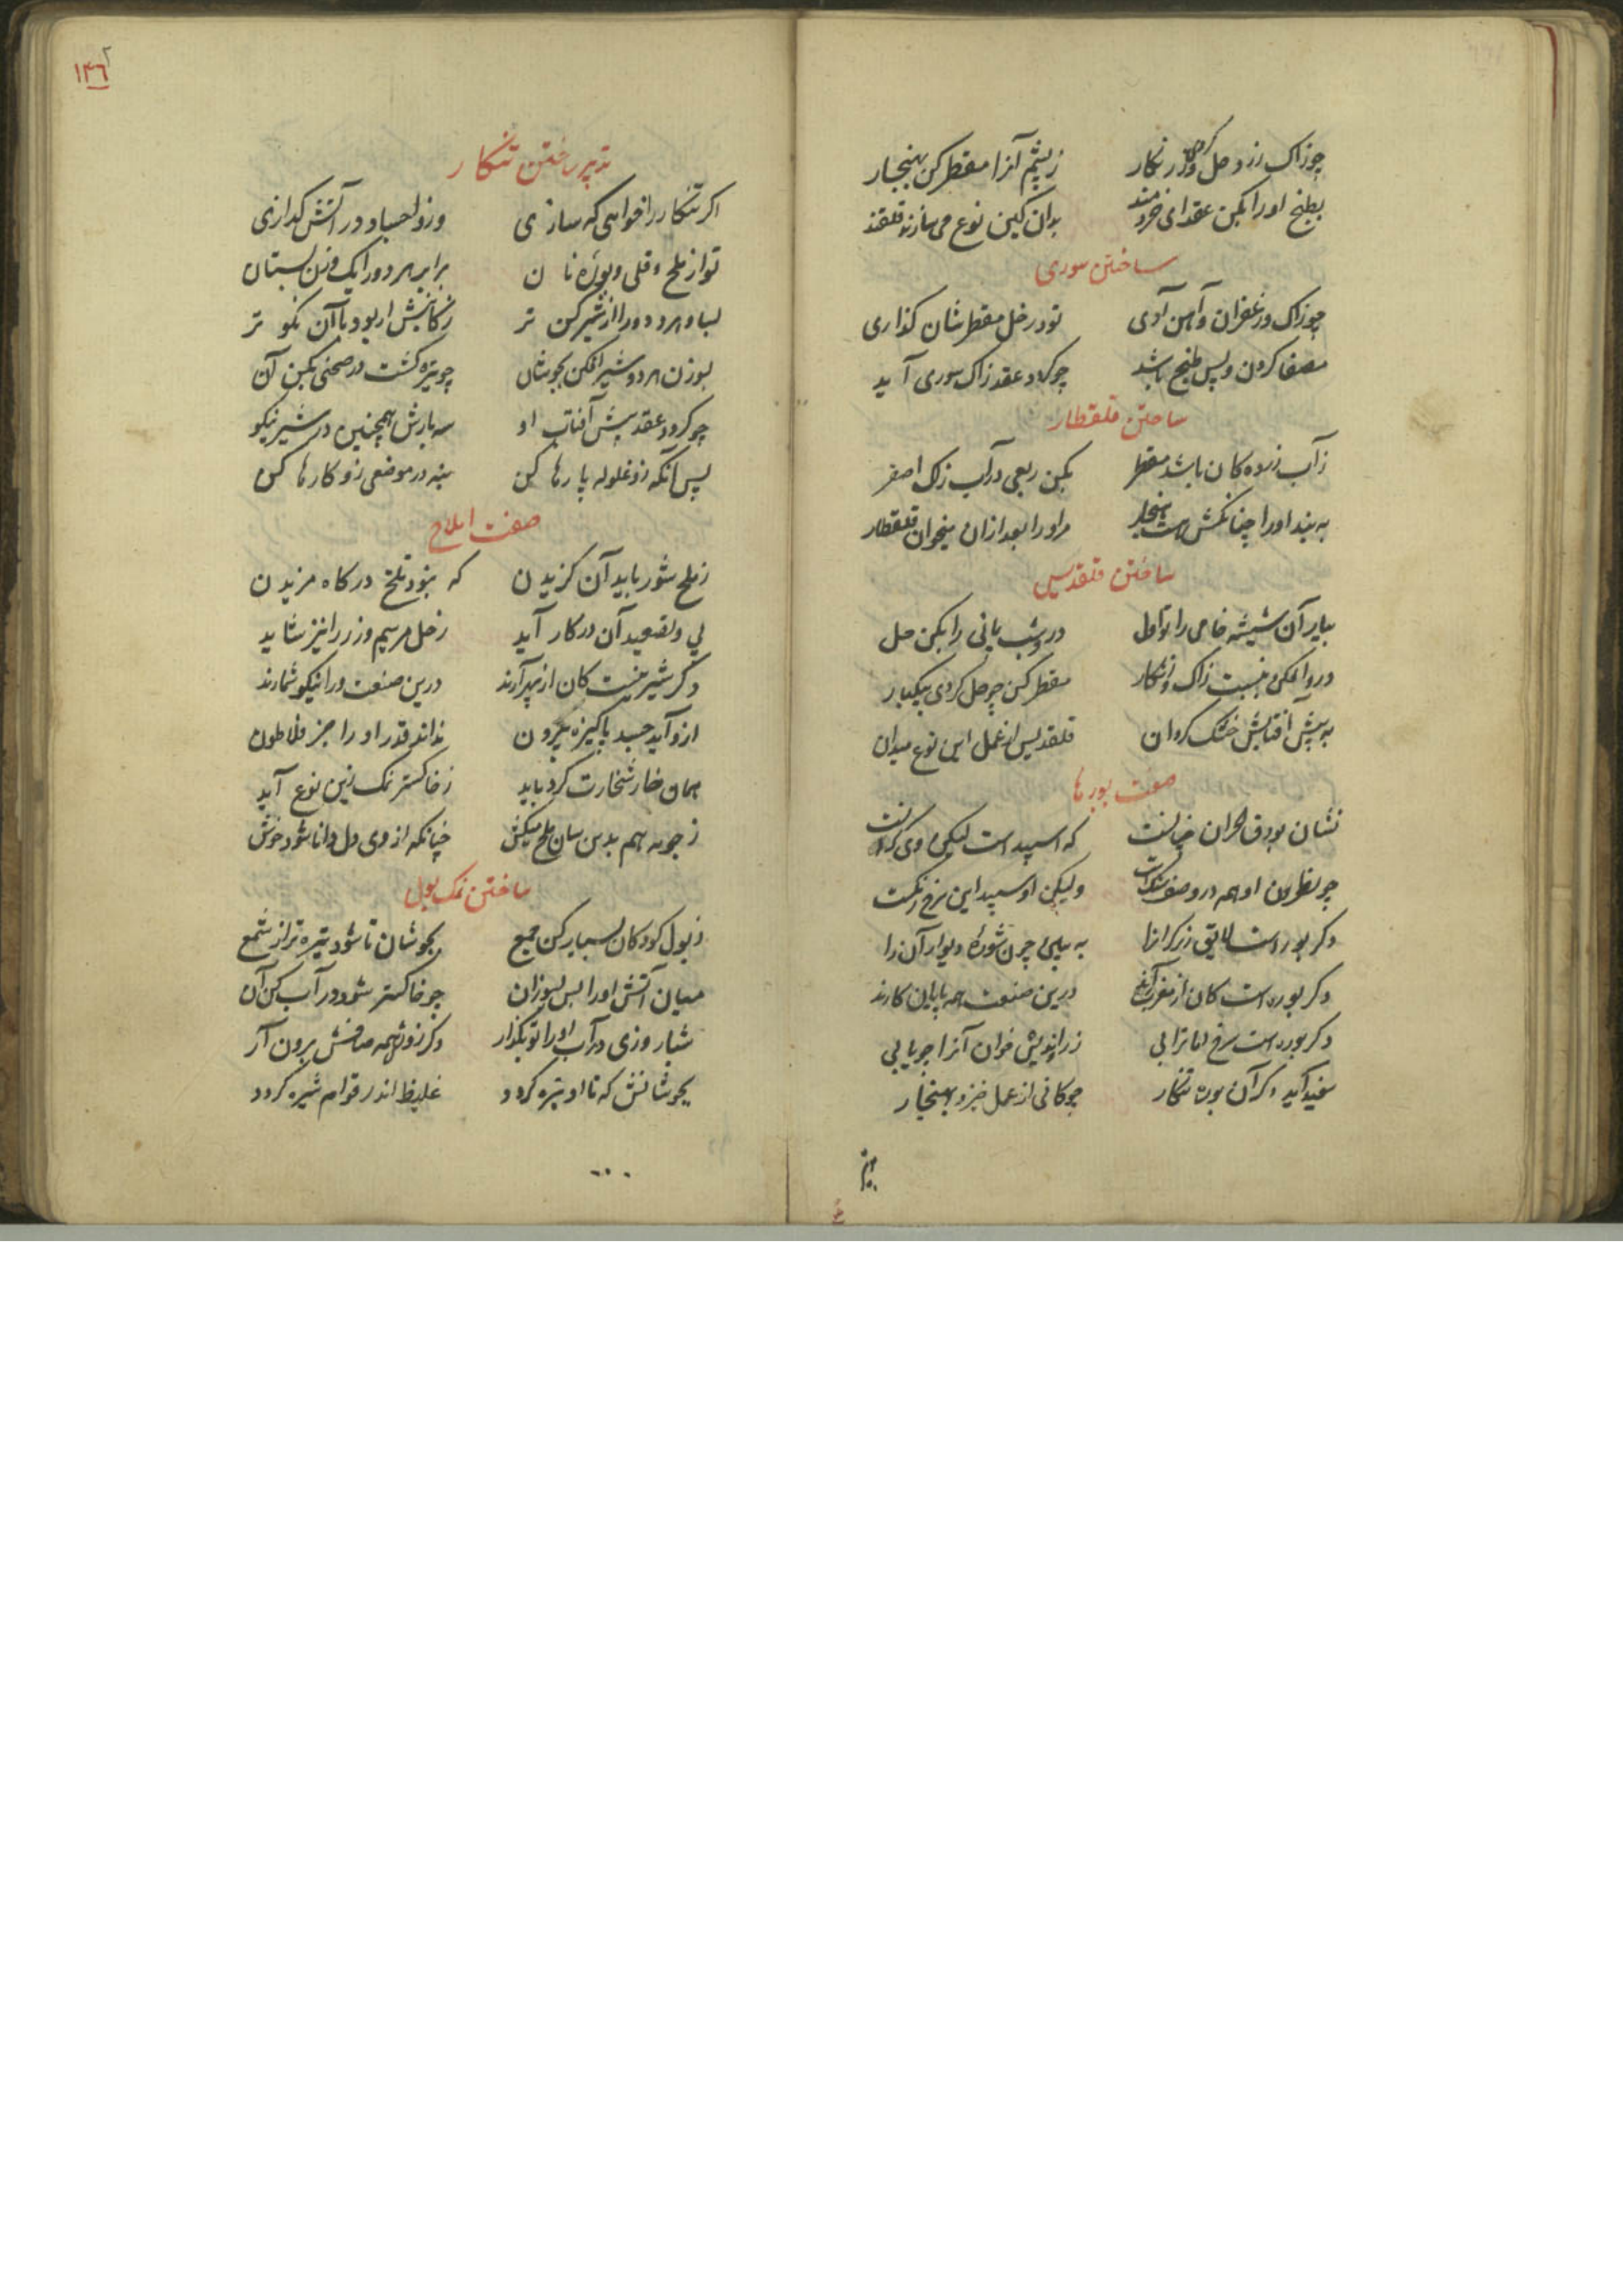 چو زاک زرد حل کردی و زنکار
ز پشم آنرا مقطر کن بهنجار
بطبخ اورا بکن عقد ای خردمند
بدان کین نوع می سازند قلقند
ساختن سوری
چو زاک و زعفران و آهن آری
تو در خل مقطر شان کذاری
مصفا کردن و پس طبخ باید
چو کردد عقد زاک سوری آید
ساختن قلقطار
ز آب زرده کان باشد مقطر
بکن ربعی در آب زاک اصفر
به بند اورا چنانکش هست هنجار
مر اورا بعد ازان میخوان قلقطار
ساختن قلقدیس
بیار آن شیشه خامی را تو اول
در و شب یمانی را بکن حل
درو افکن زاک و زنکار
مقطر کن چو حل کردی بیکبار
به پیش آفتابش خشک کردان
قلقدیس از عمل این نوع میدان
صفت بورها
نشان بورق
که اسپید است لیکن
چو نطرون او همه در وصف
ولیکن او سپید این سرخ رنکست
دکر بوره است لایق زرکرانرا
به بینی چون شوره دیوار آن را
دکر بوره است کان از مغرب آرند
درین صنعت همه پایان کارند
دکر بوره است سرخ اما ترابی
زراوندیش خوان آنرا چو یابی
سفید آید دکر آن بوره تنکار
چو کانی از عمل خیزد بهنجار
۱۴۶
تدبیر ساختن تنکار
اکر تنکار را خواهی که سازی
وزو اجساد در آتش کدازی
تو از ملح و قلی و بوره نان
برابر هر دو را یک وزن بستان
بساو هر دو را از شیر کن تر
ز کانیش ار بود با آن نکو تر
بوزن هر دو شیر افکن بجوشان
چو تیره کشت در صحنی بکن آن
چو کردد عقد پیش آفتاب او
سه بارش همچنین در شیر نیکو
پس آنکه زو غلوله پارها کن
بنه در موضعی زو کارها کن
صفت املاح
ز ملح شور باید آن کزیدن
که نبود تلخ در کاه مزیدن
پی و تصعید آن در کار آید
ز حل سیم و زر را نیز شاید
دکر شیرینست کان از بهر آرند
درین صنعت ورا نیکو شمارند
ازو آید جسد پاکیزه بیرون
نداند قدر او را جز فلاطون
همان خار شخارت کرد باید
ز خاکستر نمک زین نوع آید
ز جو به هم بدین سان ملح میکش
چنانکه از وی دل دانا شود خوش
ساختن نمک بول
ز بول کودکان بسیار کن جمع
بجوشان تا شود تیره تر از شمع
میان آتش اورا پس بسوزان
چو خاکستر شود در آب کن آن
شبا روزی در آب اورا تو بکذار
دکر زو همه صافش برون آر
بجوشانش که تا او تیره کردد
غلیظ اندر قوام شیره کردد